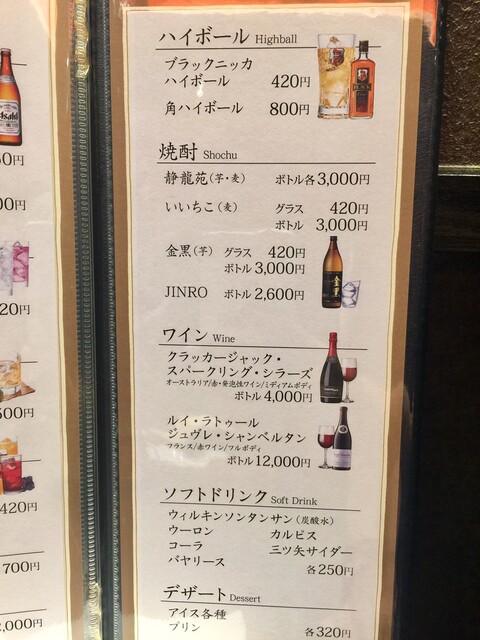 ハイボール Highball
ブラックニッカ
ハイボール 420円
角ハイボール 800円
焼酎 Shochu
静龍苑(芋・麦) ボトル各3,000円
いいちこ(麦) グラス 420円
ボトル 3,000円
金黒(芋) グラス 420円
ボトル 3,000円
JINRO ボトル 2,600円
ワイン Wine
クラッカージャック・
スパークリング・シラーズ
オーストラリア/赤・発泡性ワイン/ミディアムボディ
ボトル 4,000円
ルイ・ラトゥール
ジュヴレ・シャンベルタン
フランス/赤ワイン/フルボディ
ボトル 12,000円
ソフトドリンク Soft Drink
ウィルキンソンタンサン(炭酸水)
ウーロン カルピス
コーラ 三ツ矢サイダー
バヤリース 各250円
デザート Dessert
アイス各種
プリン 各320円
Asahi
50円
00円
20円
500円
420円
700円
2,000円